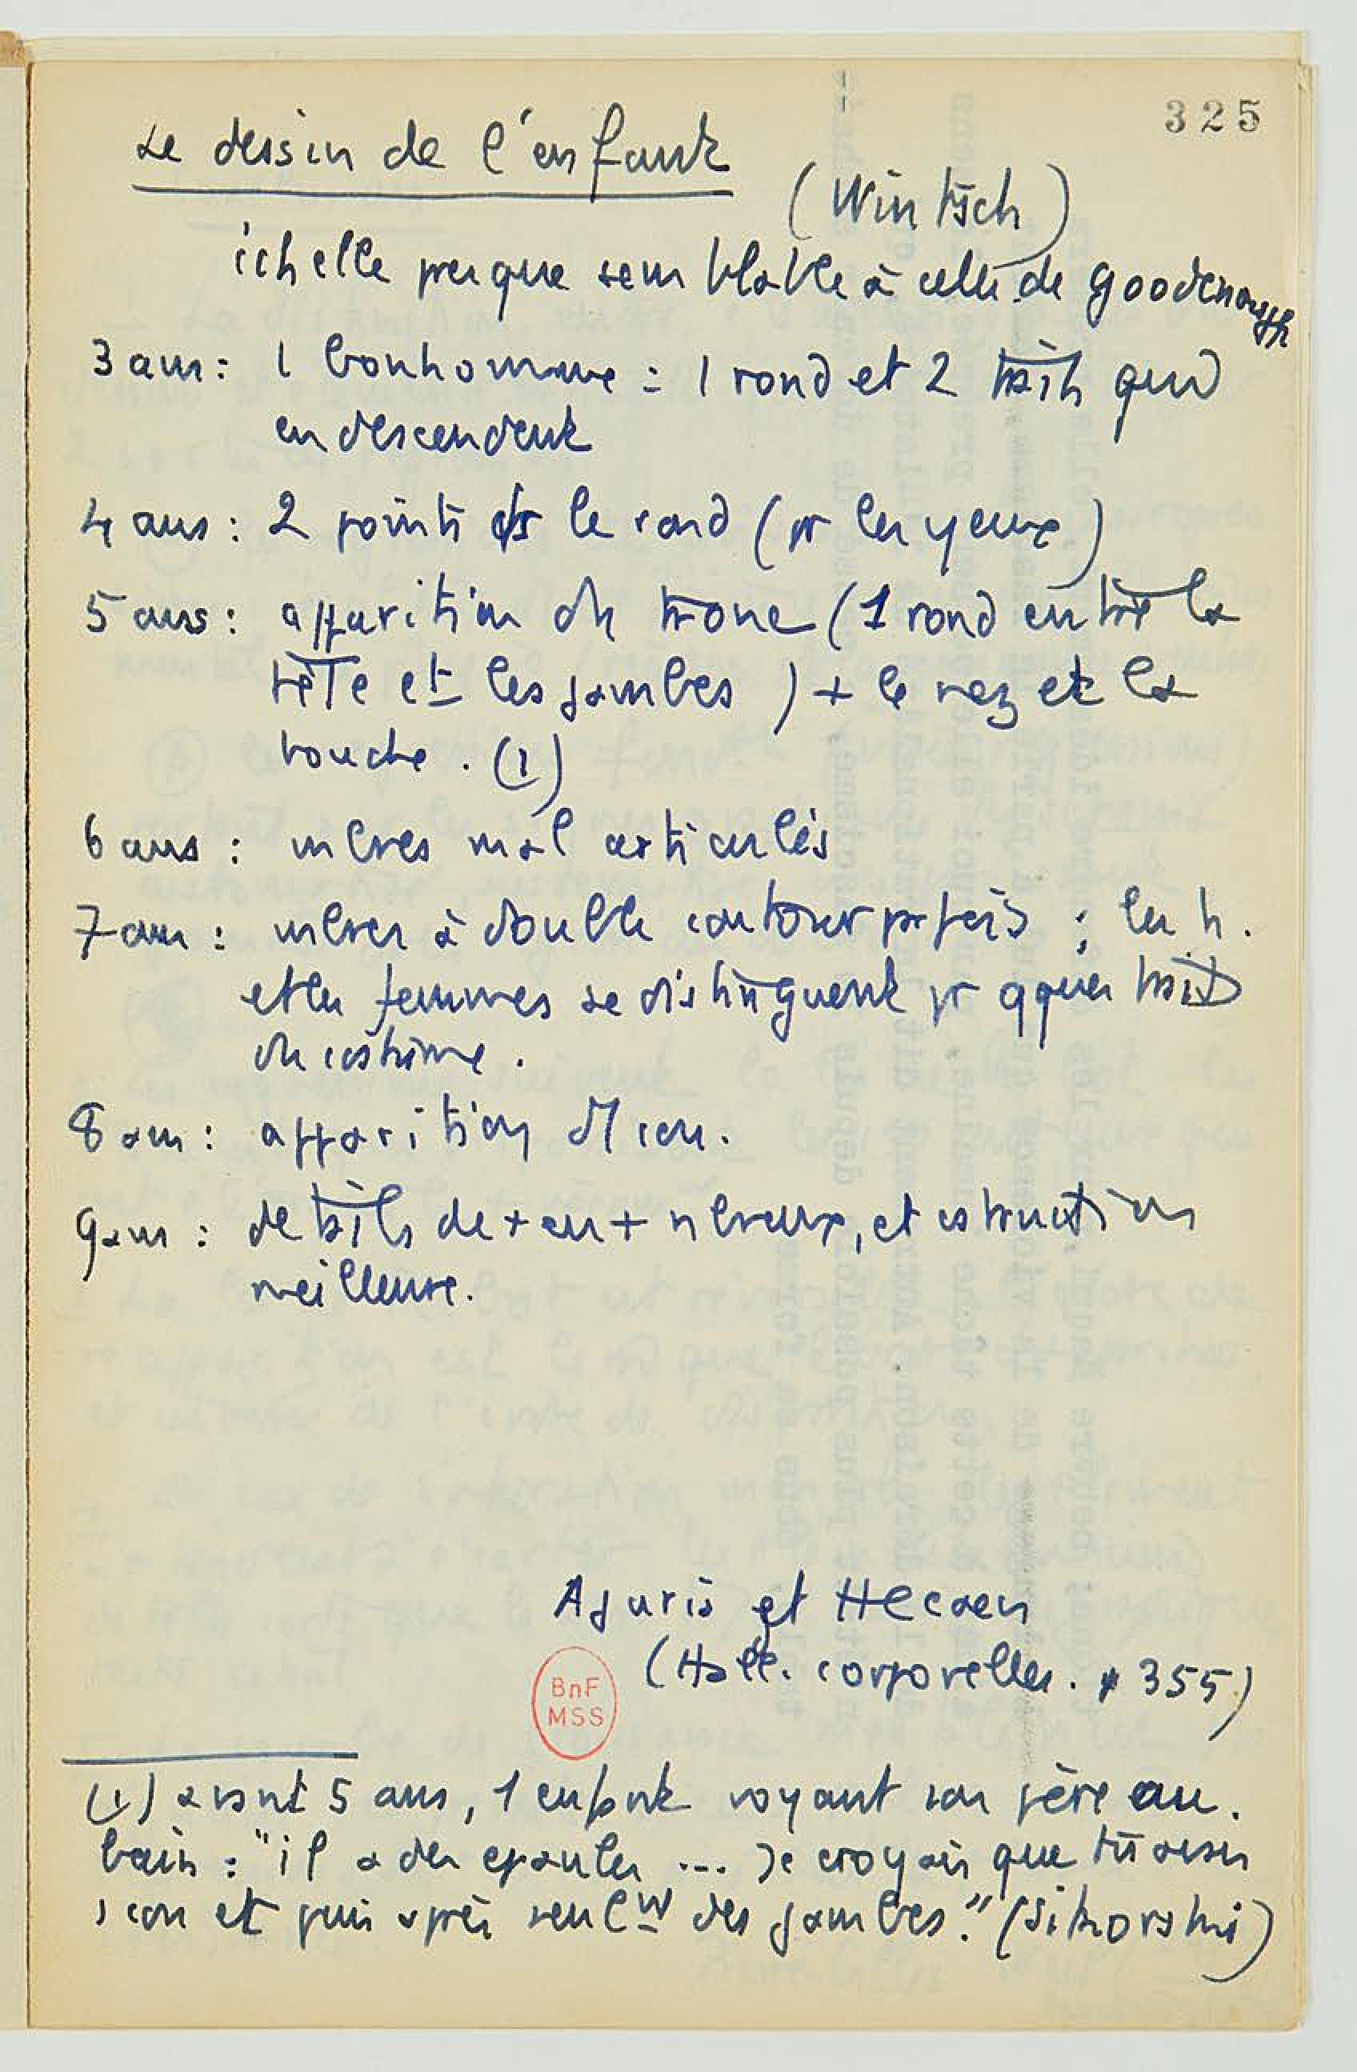 325
Le dessin de l'enfant
(Wintsch)
échelle presque semblable à celle de Goodenough
3 ans : 1 bonhomme = 1 rond et 2 traits qui
en descendent
4 ans : 2 points ds le rond (pr les yeux)
5 ans : apparition du tronc (1 rond entre la
tête et les jambes) + le nez et la
bouche. (1)
6 ans : mbres mal articulés
7 ans : mbres à double contour parfois ; les h.
et les femmes se distinguent pr qques traits
du costume.
8 ans : apparition du cou.
9 ans : détails de + en + nbreux, et construction
meilleure.
Ajuria et Hecaen
(Hall. corporelles. p 355)
BnF
MSS
(1) avant 5 ans, 1 enfant voyant son père au
bain : "il a des epaules ... Je croyais que tu avais
1 cou et puis après seulmt des jambes." (Sikorski)